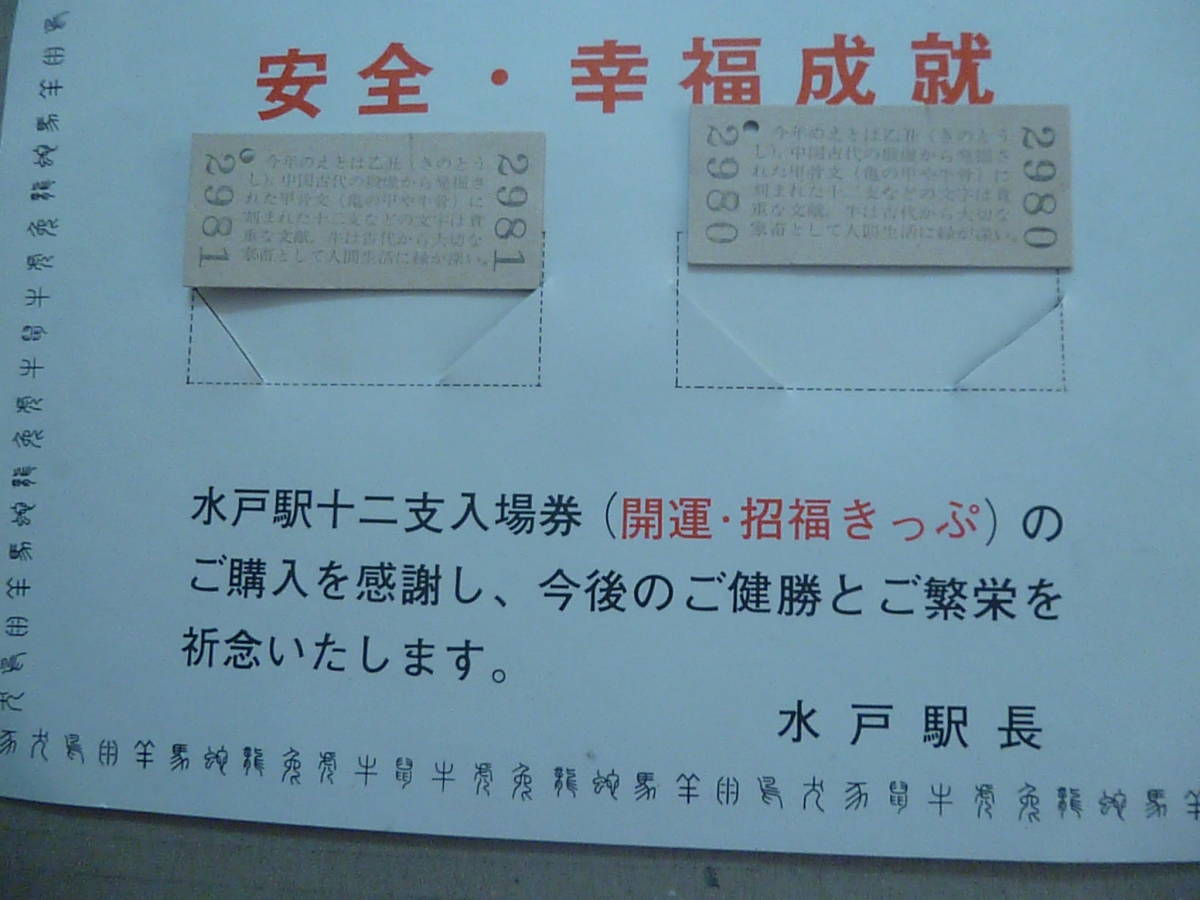 安全・幸福成就
2981
今年のえとは乙丑（きのとう
し）。中国古代の殷虚から発掘さ
れた甲骨文（亀の甲や牛骨）に
刻まれた十二支などの文字は貴
重な文献。牛は古代から大切な
家畜として人間生活に縁が深い。
2981
2980
今年のえとは乙丑（きのとう
し）。中国古代の殷虚から発掘さ
れた甲骨文（亀の甲や牛骨）に
刻まれた十二支などの文字は貴
重な文献。牛は古代から大切な
家畜として人間生活に縁が深い。
2980
水戸駅十二支入場券（開運・招福きっぷ）の
ご購入を感謝し、今後のご健勝とご繁栄を
祈念いたします。
水戸駅長